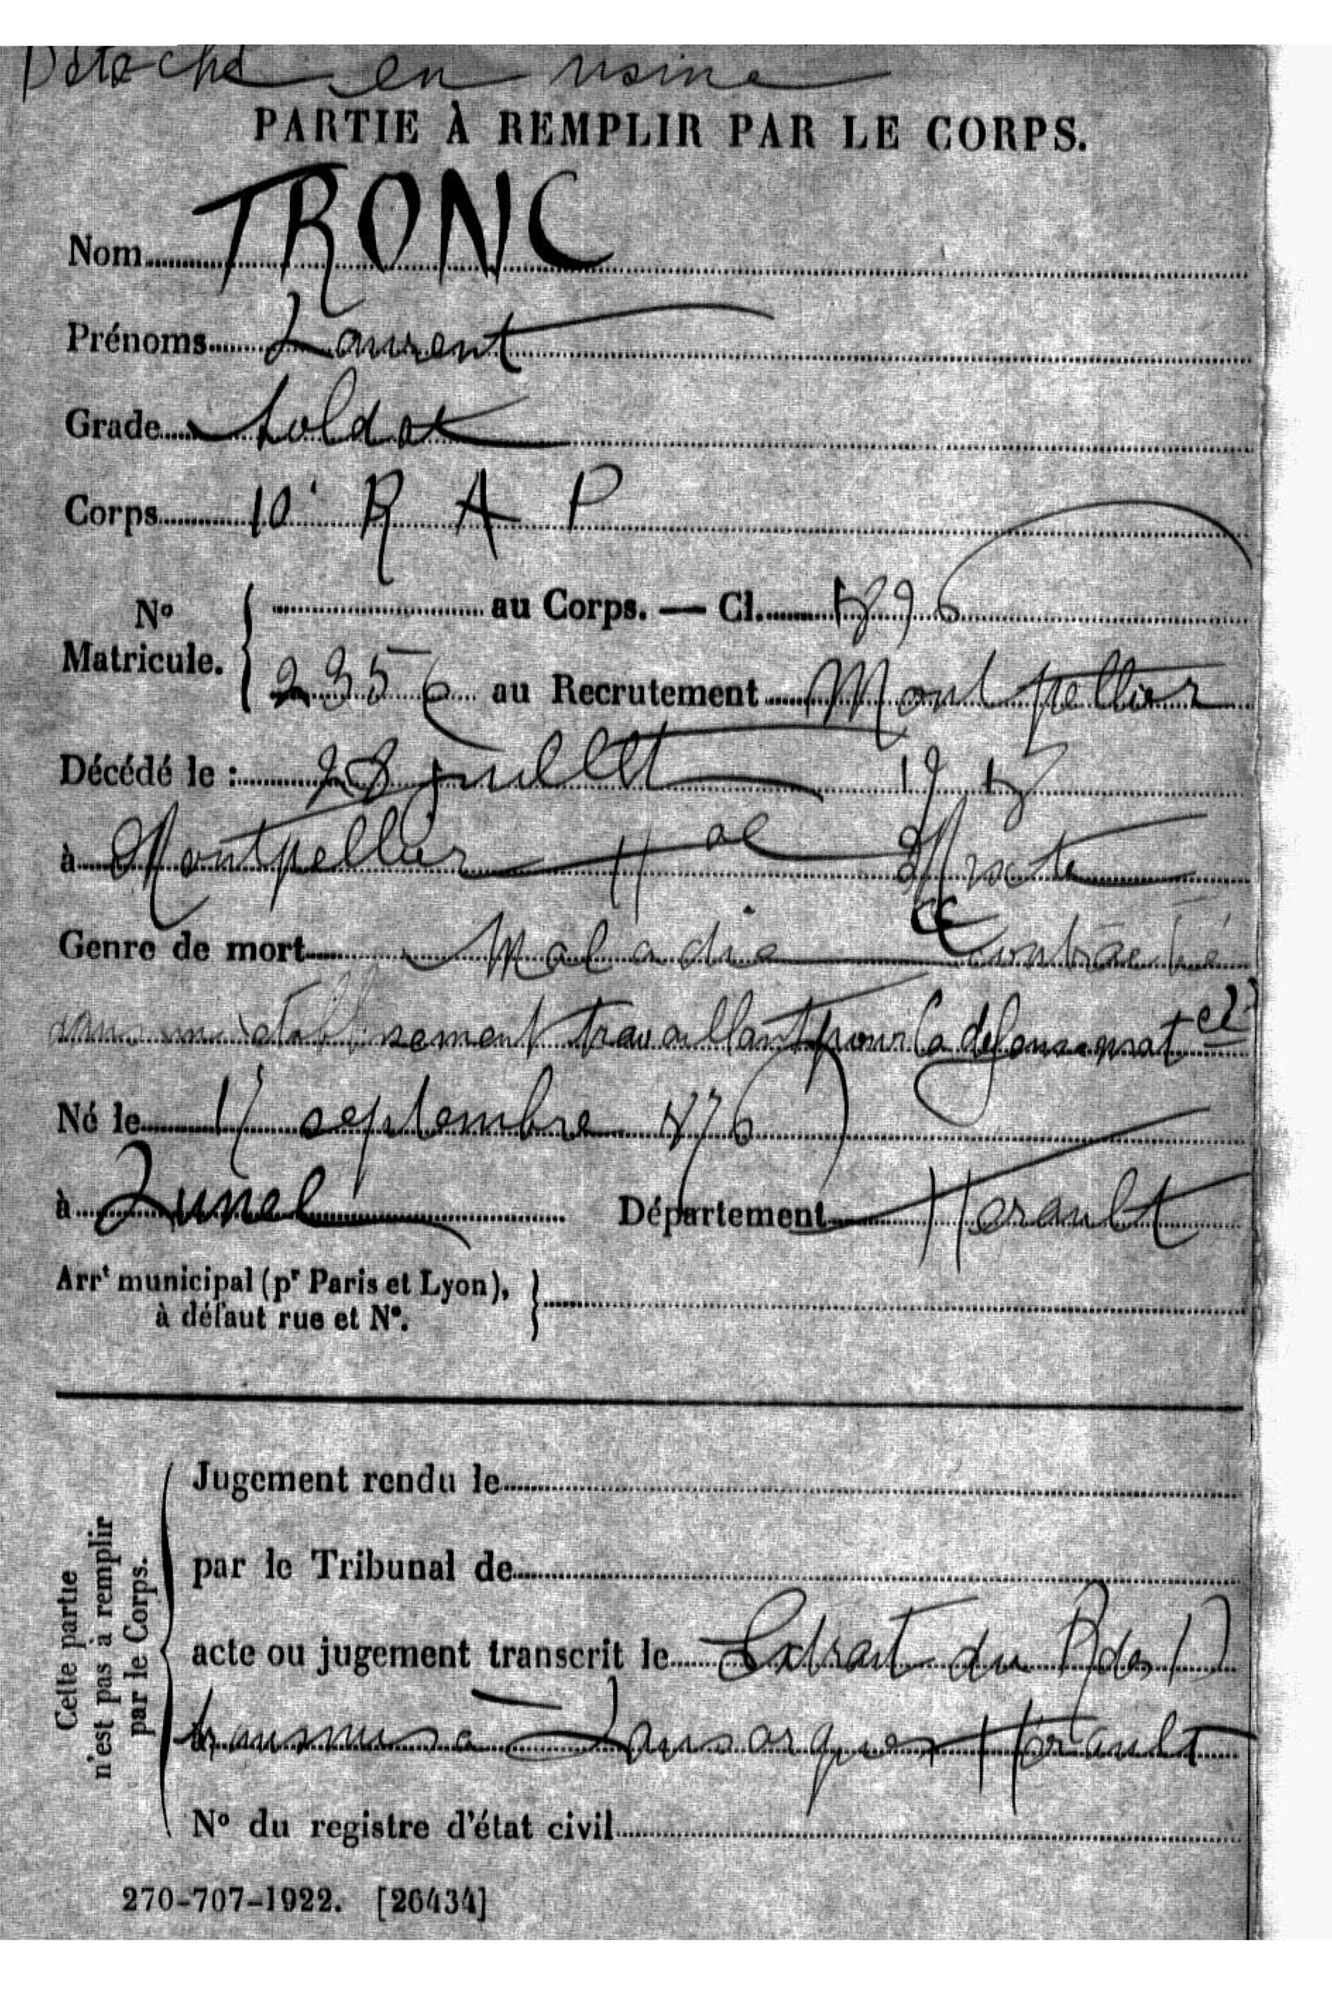 Détaché en usine
PARTIE À REMPLIR PAR LE CORPS.
Nom TRONC
Prénoms Laurent
Grade Soldat
Corps 10e R A P
No Matricule. { au Corps. — Cl. 1896
2356 au Recrutement Montpellier
Décédé le : 28 juillet 1917
à Montpellier Hal Mixte
Genre de mort Maladie contractée
dans un établissement travaillant pour la défense nat elle
Né le 17 septembre 1876
à Lunel Département Hérault
Arrt municipal (pr Paris et Lyon),
à défaut rue et No. }
Cette partie n'est pas à remplir par le Corps. {
Jugement rendu le
par le Tribunal de
acte ou jugement transcrit le Extrait du R des D
transmis à Lansargues Hérault
No du registre d'état civil
270-707-1922. [26434]